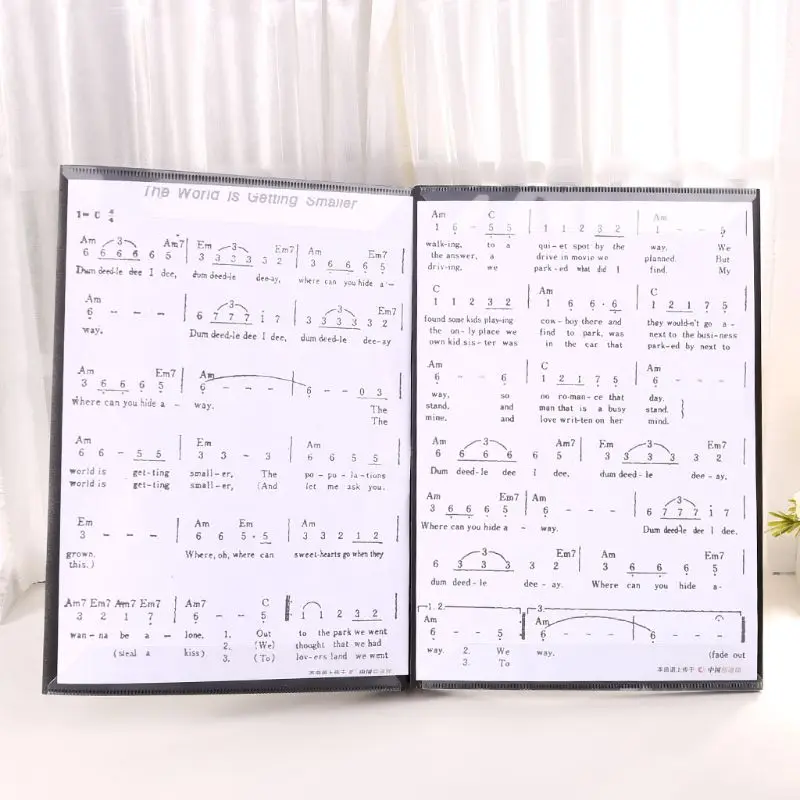 The World Is Getting Smaller
1= C 4/4
Am Am7 Em Em7 Am Em7
6 6 6 6 6 5 3 3 3 3 3 2 3 6 6 6 5
Dum deed-le dee I dee, dum deed-le dee-ay, where can you hide a-
Am Em7
6 - - - 6 7 7 7 i 7 3 3 3 3 3 2
way. Dum deed-le dee I dee, dum deed-le dee-ay
Am Em7 Am
3 6 6 6 5 6 - - - 6 - - 0 3
Where can you hide a - way. The
The
Am Em Am
6 6 - 5 5 3 3 - 3 6 6 5 5
world is get-ting small-er, The po-pu-la-tions
world is get-ting small-er, (And let me ask you.
Em Am Em Am
3 - - - 6 6 5 · 5 3 3 2 1 2
grown. Where, oh, where can sweet-hearts go when they
this.)
Am7 Em7 Am7 Em7 Am7 C
3 2 1 7 6 - - 5 1 1 2 3 2
wan-na be a - lone. 1. Out to the park we went
(steal a kiss). 2. (We) thought that we had
3. (To) lov-ers land we went
本曲谱上传于 中国
Am C Am
1 6 - 5 5 1 1 2 3 2 1 - - 5
walk-ing, to a qui-et spot by the way. We
the answer, a drive in movie we planned. But
driv-ing, we park-ed what did I find. My
C Am C
1 1 2 3 2 1 6 6 · 6 1 2 1 7 5
found some kids play-ing cow-boy there and they would-n't go a-
the on-ly place we find to park, was next to the busi-ness
own kid sis-ter was in the car that park-ed by next to
Am C Am
6 - - 6 1 2 1 7 5 6 - - -
way, so no ro-mance that day.
stand, and man that is a busy stand.
mine, and love writ-ten on her mind.
Am Am7 Em Em7
6 6 6 6 6 5 3 3 3 3 3 2
Dum deed-le dee I dee. dum deed-le dee-ay,
Am Em7 Am
3 6 6 6 5 6 - - - 6 7 7 7 i 7
Where can you hide a - way. Dum deed-le dee I dee.
Em7 Am Em7
6 3 3 3 3 2 3 6 6 6 5
dum deed-le dee-ay. Where can you hide a-
1. 2 3.
Am Am
6 - - 5 6 - - - 6 - - -
way. 2. We way. (fade out
3. To
本曲谱上传于 中国